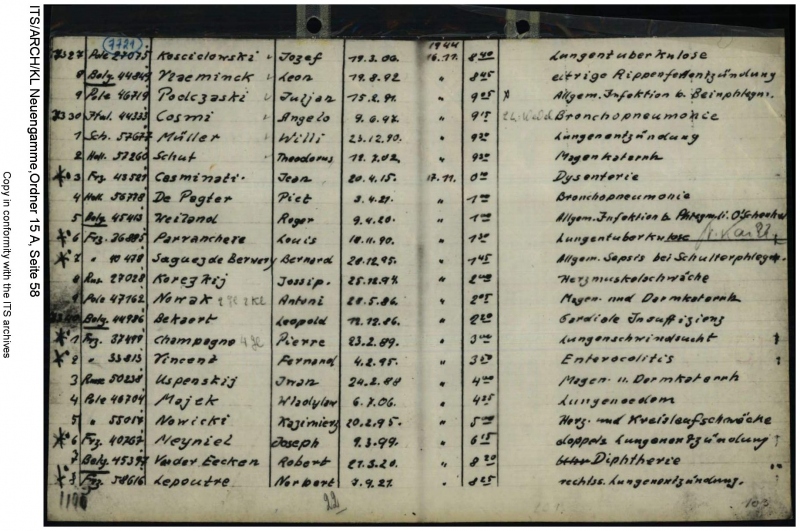 ITS/ARCH/KL Neuengamme, Ordner 15 A, Seite 58
Copy in conformity with the ITS archives
7721
1944
27 Pole 27075 Koscielowski Jozef 19.3.00. 16.11. 8 40 Lungentuberkulose
8 Belg. 44849 Vlaeminck Leon 19.8.92 " 8 45 eitrige Rippenfellentzündung
9 Pole 46719 Podczaski Juljan 15.2.91. " 9 05 Allgem. Infektion b. Beinphlegm.
30 Ital. 44333 Cosmi Angelo 9.6.97. " 9 15 Bronchopneumonie
1 Sch. 57677 Müller Willi 23.12.90. " 9 20 Lungenentzündung
2 Holl. 57260 Schut Theodorus 12.7.02. " 9 30 Magenkatarrh
3 Frz. 43521 Casminati. Jean 20.4.15. 17.11. 0 Dysenterie
4 Holl. 56778 De Pagter Piet 3.4.21. " 1 Bronchopneumonie
5 Belg. 45413 Weiland Roger 9.4.20. " 1 Allgem. Infektion b. Phlegm. li. O'Schenkel
6 Frz. 36885 Parranchere Louis 18.11.90. " 1 30 Lungentuberkulose
7 " 10 478 Saguez de Bervery Bernard 28.12.95. " 1 45 Allgem. Sepsis bei Schulterphlegm.
8 Rus. 27028 Korezkij Jossip. 25.12.97. " 2 00 Herzmuskelschwäche
9 Pole 47162 Nowak Antoni 28.5.86. " 2 05 Magen- und Darmkatarrh
Belg. 44986 Bekaert Leopold 12.12.86. " 2 20 Cardiale Insuffizienz
1 Frz. 37499 Champagne Pierre 23.2.89. " 3 00 Lungenschwindsucht
2 " 33813 Vincent Fernand 4.2.95. " 3 Enterocolitis
3 Russe 50238 Uspenskij Iwan 24.2.88 " 4 00 Magen- u. Darmkatarrh
4 Pole 46704 Majek Wladyslaw 6.7.06. " 4 Lungenoedem
5 " 55059 Nowicki Kazimierz 20.2.95. " 5 00 Herz- und Kreislaufschwäche
6 Frz. 40767 Meyniel Joseph 9.3.99. " 6 15 doppels. Lungenentzündung
7 Belg. 45397 Vander Eecken Robert 21.3.20. " 8 20 Diphtherie
8 Frz. 38616 Lepoutre Norbert 7.9.27. " 8 25 rechts. Lungenentzündung.
22
103